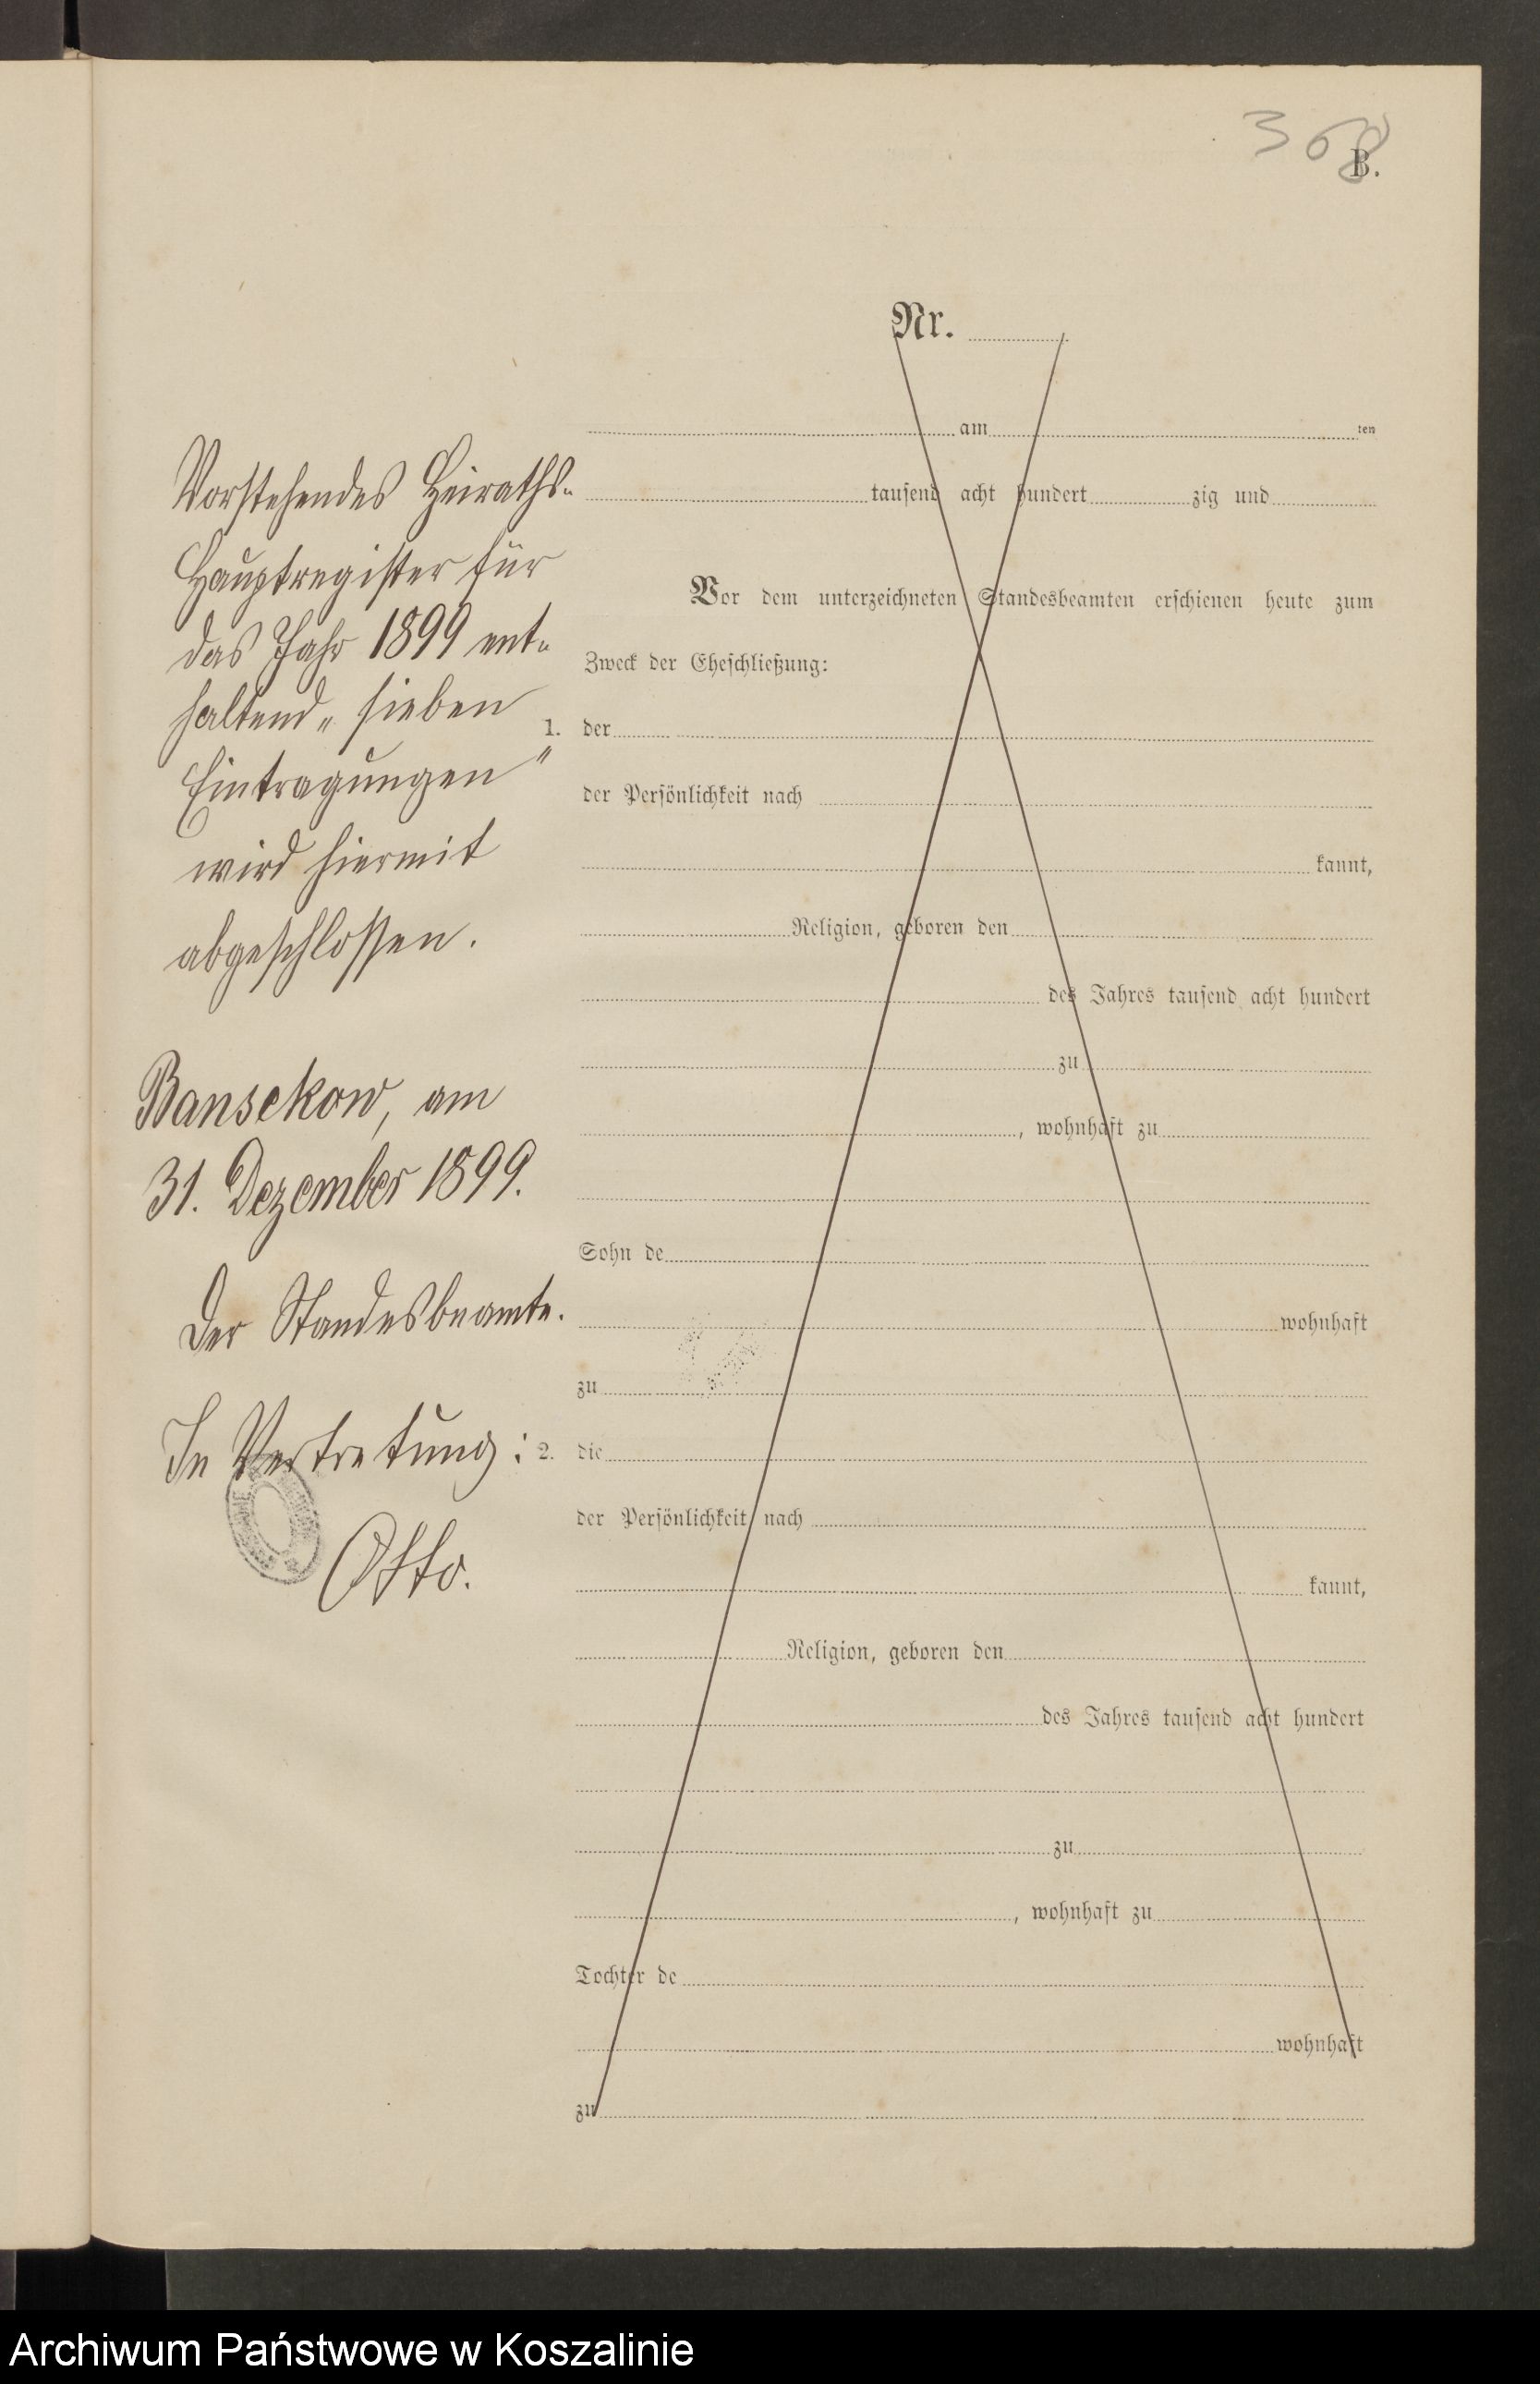 368
B.
Nr.
am ten
tausend acht hundert zig und
Vor dem unterzeichneten Standesbeamten erschienen heute zum
Zweck der Eheschließung:
1. der
der Persönlichkeit nach
kannt,
Religion, geboren den
des Jahres tausend acht hundert
zu
, wohnhaft zu
Sohn de
wohnhaft
zu
2. die
der Persönlichkeit nach
kannt,
Religion, geboren den
des Jahres tausend acht hundert
zu
, wohnhaft zu
Tochter de
wohnhaft
zu
Vorstehendes Heiraths-
Hauptregister für
das Jahr 1899 ent-
haltend „sieben
Eintragungen"
wird hiermit
abgeschlossen.
Bansekow, am
31. Dezember 1899.
Der Standesbeamte.
In Vertretung:
Otto.
Archiwum Państwowe w Koszalinie